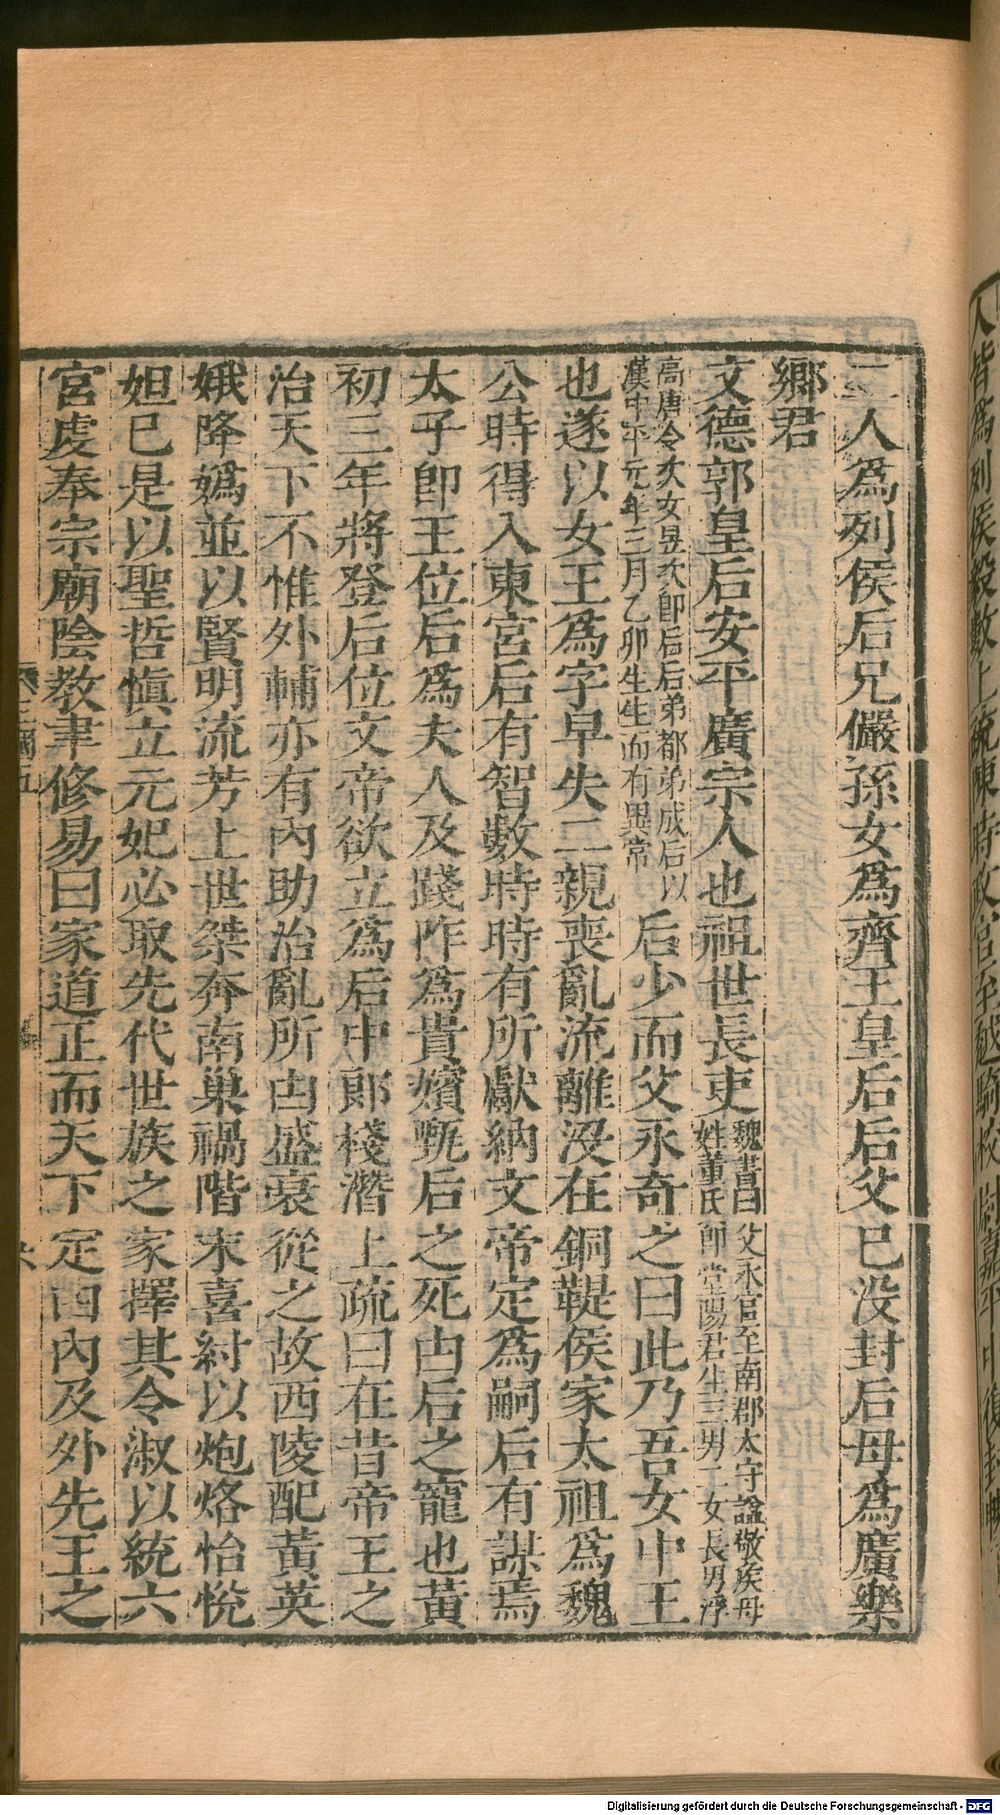 二人爲列侯后兄儼孫女爲齊王皇后后父已没封后母爲廣樂
鄉君
文德郭皇后安平廣宗人也祖世長吏魏書曰父永官至南郡太守諡敬侯母
姓董氏即堂陽君生三男二女長男浮
高唐令次女昱次即后后弟都弟成后以
漢中平元年三月乙卯生生而有異常后少而父永奇之曰此乃吾女中王
也遂以女王爲字早失二親喪亂流離没在銅鞮侯家太祖爲魏
公時得入東宮后有智數時時有所獻納文帝定爲嗣后有謀焉
太子即王位后爲夫人及踐阼爲貴嬪甄后之死由后之寵也黃
初三年將登后位文帝欲立爲后中郎棧潛上疏曰在昔帝王之
治天下不惟外輔亦有內助治亂所由盛衰從之故西陵配黃英
娥降嬀並以賢明流芳上世桀奔南巢禍階末喜紂以炮烙怡悅
妲己是以聖哲慎立元妃必取先代世族之家擇其令淑以統六
宮虔奉宗廟陰教聿修易曰家道正而天下定由內及外先王之
三國五
人皆爲列侯
Digitalisierung gefördert durch die Deutsche Forschungsgemeinschaft - DFG